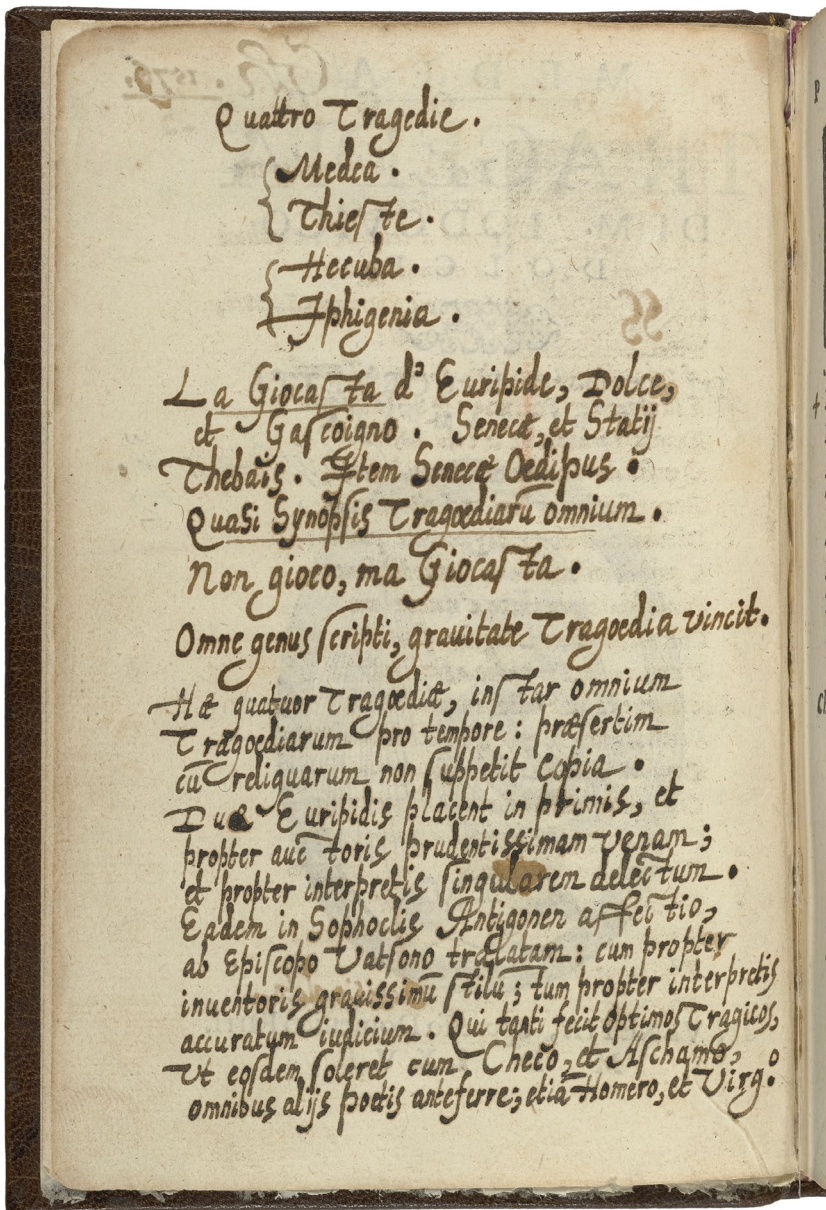 Quattro Tragedie.
Medea.
Thieſte.
Hecuba.
Iphigenia.
La Giocaſta d' Euripide, Dolce,
et Gaſcoigno. Senecæ, et Statij
Thebais. Item Senecæ Oedipus.
Quasi Synopsis Tragœdiarū omnium.
Non gioco, ma Giocaſta.
Omne genus ſcripti, grauitate Tragoedia vincit.
Hæ quatuor Tragœdiæ, inſtar omnium
Tragœdiarum pro tempore: præſertim
cū reliquarum non ſuppetit copia.
Duæ Euripidis placent in primis, et
propter auctoris prudentissimam venam;
et propter interpretis ſingularem delectum.
Eadem in Sophoclis Antigonen affectio,
ab Epiſcopo Vatsono tralatam: cum propter
inuentoris grauissimū ſtilū; tum propter interpretis
accuratum iudicium. Qui tanti fecit optimos Tragicos,
Vt eosdem ſoleret cum Checo, et Aſchamo,
omnibus alijs poetis anteferre; etiā Homero, et Virg:°